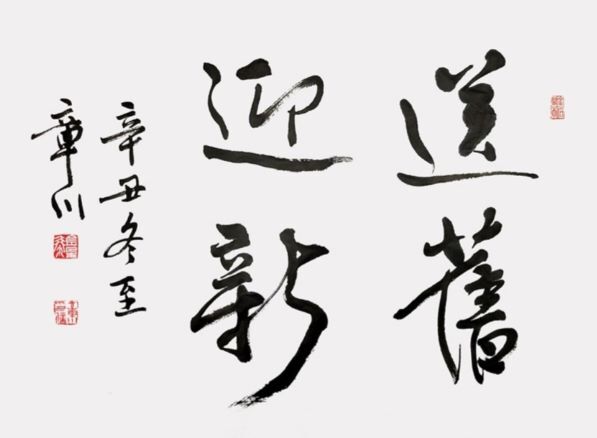 送舊
迎新
辛丑冬至
章川